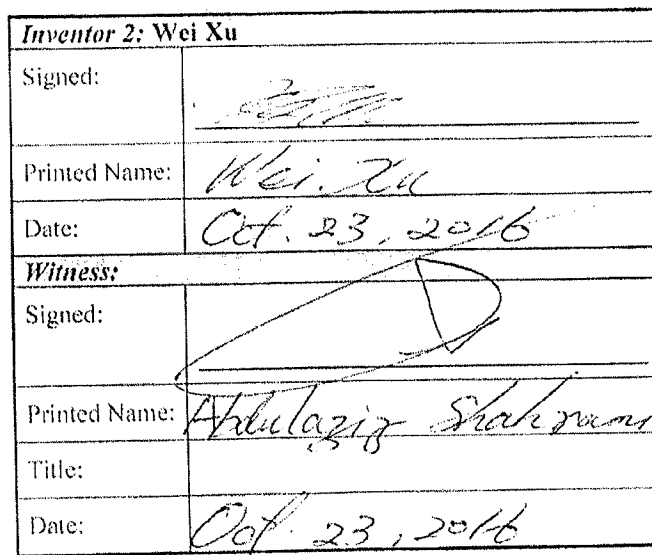 Inventor 2: Wei Xu
Signed:
Printed Name: Wei. Xu
Date: Oct. 23, 2016
Witness:
Signed:
Printed Name: Abdulaziz
Title:
Date: Oct. 23, 2016